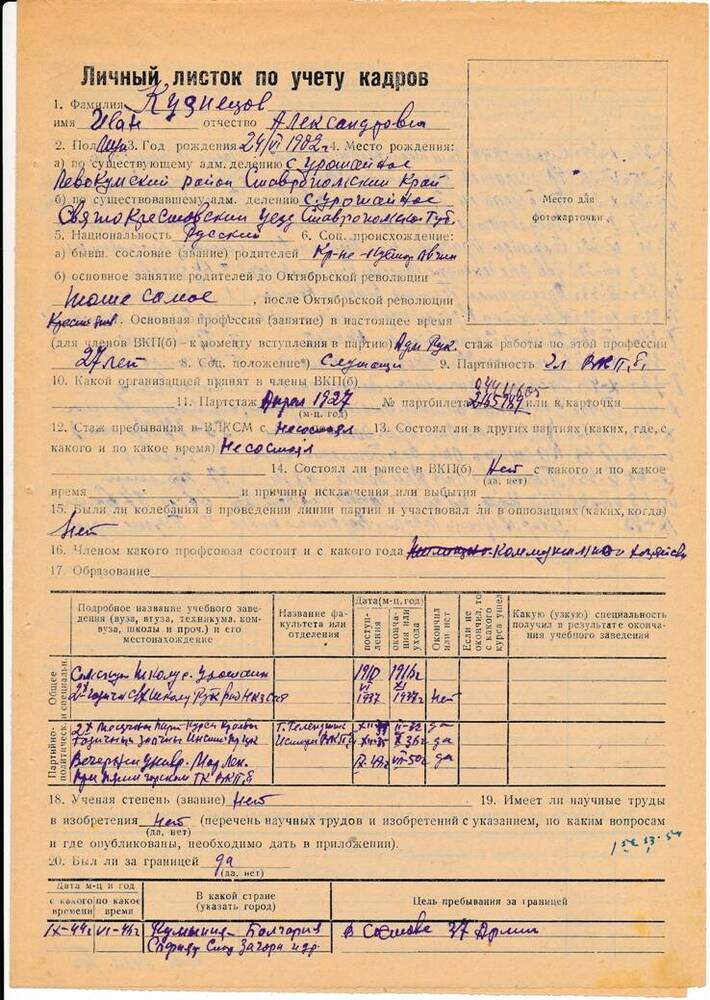 Личный листок по учету кадров
1. Фамилия Кузнецов
имя Иван отчество Александрович
2. Пол муж 3. Год рождения 24/VI 1902 г 4. Место рождения:
а) по существующему адм. делению с Урожайное
Левокумский район Ставропольский Край
б) по существовавшему адм. делению с. Урожайное
Святокрестовский уезд Ставропольск. Губ.
Место для
фотокарточки
5. Национальность Русский 6. Соц. происхождение:
а) бывш. сословие (звание) родителей Кр-не
б) основное занятие родителей до Октябрьской революции
тоже самое, после Октябрьской революции
7. Основная профессия (занятие) в настоящее время
(для членов ВКП(б) – к моменту вступления в партию) Адм Рук. стаж работы по этой профессии
27 лет 8. Соц. положение*) Служащи 9. Партийность Чл ВКП/б/
10. Какой организацией принят в члены ВКП(б)
11. Партстаж Апрел 1927 № партбилета или к. карточки
(м-ц. год)
12. Стаж пребывания в ВЛКСМ с Несостоял 13. Состоял ли в других партиях (каких, где, с
какого и по какое время) Несостоял
14. Состоял ли ранее в ВКП(б) Нет с какого и по какое
(да, нет)
время и причины исключения или выбытия
15. Были ли колебания в проведении линии партии и участвовал ли в оппозициях (каких, когда)
Нет
16. Членом какого профсоюза состоит и с какого года Коммунального хозяйсв
17. Образование
Подробное название учебного заведения (вуза, втуза, техникума, комвуза, школы и проч.) и его местонахождение
Название факультета или отделения
Дата (м-ц, год)
поступления
окончания или ухода
Окончил или нет
Если не окончил, то с какого курса ушел
Какую (узкую) специальность получил в результате окончания учебного заведения
Общее и специальн.
Сельскую школу с. Урожайн 1910 1916 г
VI 1937 XI 1937 г Нет
Партийно-политическ.
2х месячны парт курсы да
Истори ВКП/б/ X 36 г да
Вечерний Универ. Мар. Лен. IX-49 г VII-50 г да
при Пятигорском ГК ВКП/б
18. Ученая степень (звание) Нет 19. Имеет ли научные труды
и изобретения Нет (перечень научных трудов и изобретений с указанием, по каким вопросам
(да, нет)
и где опубликованы, необходимо дать в приложении).
20. Был ли за границей да
(да, нет)
Дата м-ц и год
с какого времени
по какое время
В какой стране (указать город)
Цель пребывания за границей
IX-44 г VI-46 г Румыния – Болгария В составе 37 Армии
Стар Загора и др.